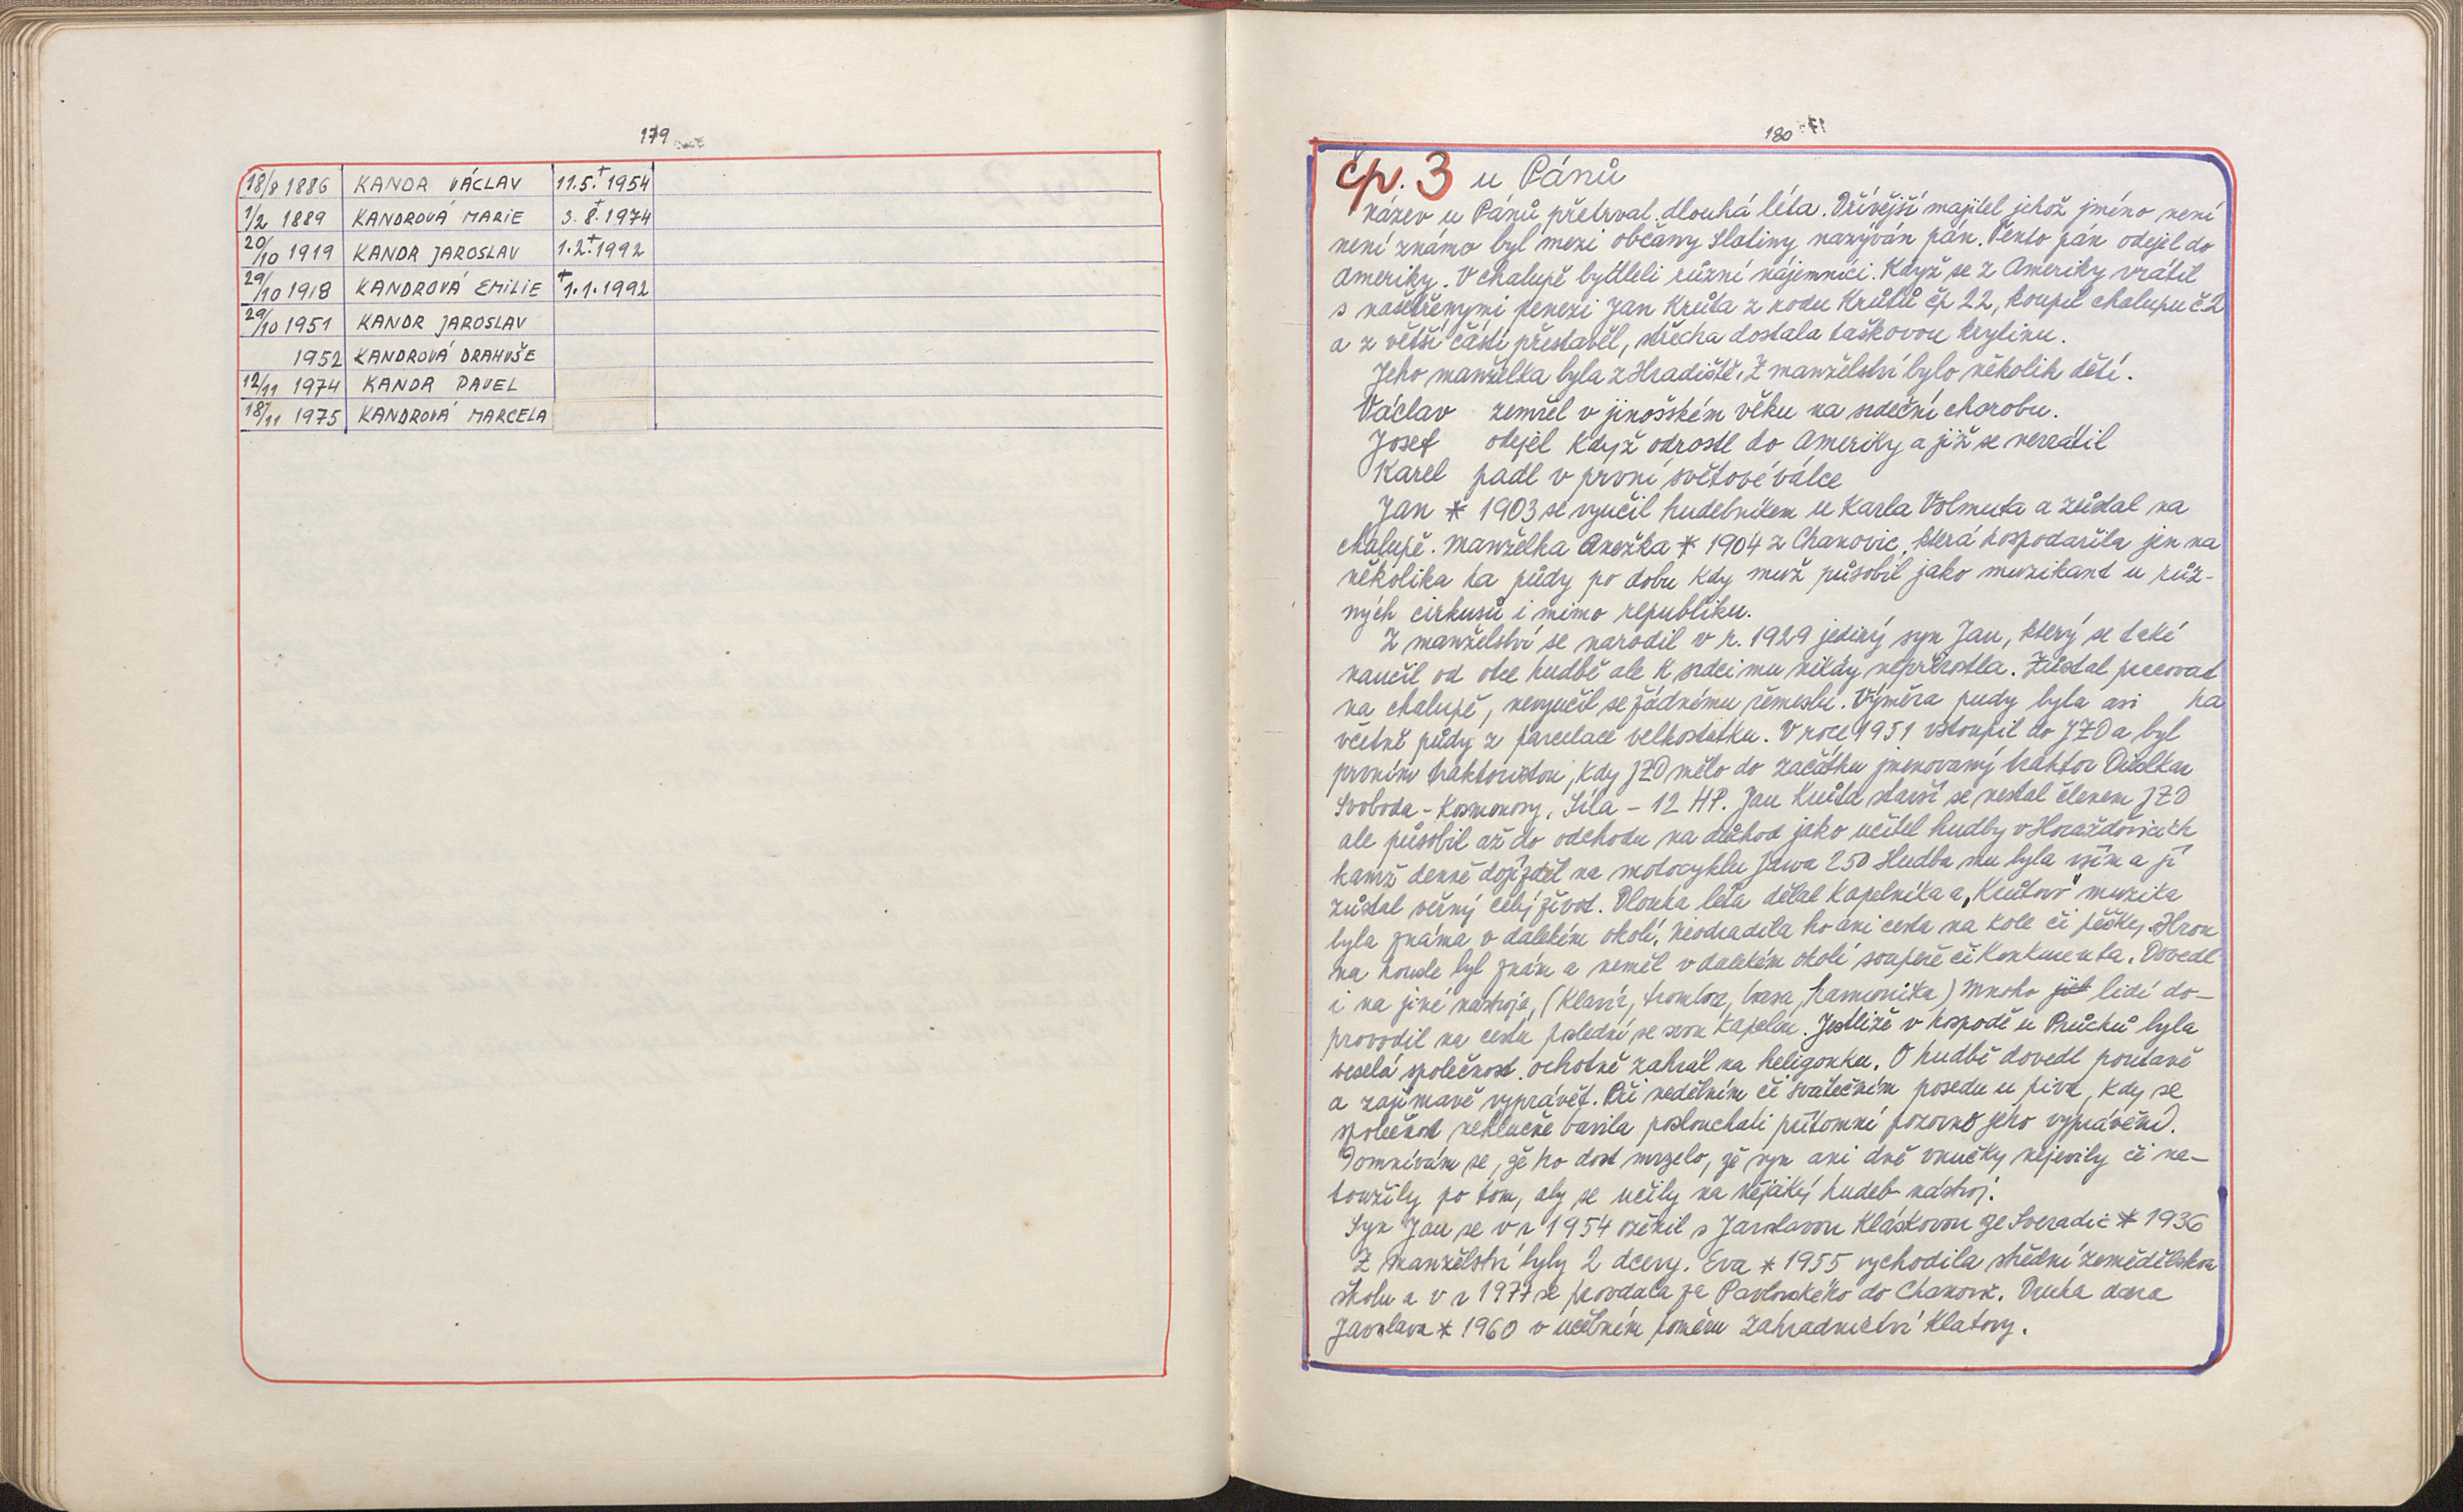 179
18/8 1886 KANDR VÁCLAV 11.5.† 1954
1/2 1889 KANDROVÁ MARIE 3.†8.1974
20/10 1919 KANDR JAROSLAV 1.2.†1992
29/10 1918 KANDROVÁ EMILIE †1.1.1992
29/10 1951 KANDR JAROSLAV
1952 KANDROVÁ DRAHUŠE
12/11 1974 KANDR PAVEL
18/11 1975 KANDROVÁ MARCELA
180
čp. 3 u Pánů
název u Pánů přetrval dlouhá léta. Dřívější majitel jehož jméno není
není známo byl mezi občany Slatiny nazýván pán. Tento pán odejel do
Ameriky. V chalupě bydleli různí nájemníci. Když se z Ameriky vrátil
s našetřenými penezi Jan Krůta z rodu Krůtů čp 22, koupil chalupu č.2
a z větší části přestavěl, střecha dostala taškovou krytinu.
Jeho manželka byla z Hradiště. Z manželství bylo několik dětí.
Václav zemřel v jinošském věku na srdeční chorobu.
Josef odejel když odrostl do Ameriky a již se nevrátil
Karel padl v první světové válce
Jan * 1903 se vyučil hudebníkem u Karla Volmuta a zůstal na
chalupě. Manželka Anežka * 1904 z Chanovic, která hospodařila jen na
několika ha půdy po dobu kdy muž působil jako muzikant u růz-
ných cirkusů i mimo republiku.
Z manželství se narodil v r. 1929 jediný syn Jan, který se také
naučil od otce hudbě ale k srdci mu nikdy nepřirostla. Zůstal pracovat
na chalupě, nevyučil se žádnému řemeslu. Výměra pudy byla asi ha
včetně půdy z parcelace velkostatku. V roce 1951 vstoupil do JZD a byl
prvním traktoristou, kdy JZD mělo do začátku jmenovaný traktor
Svoboda - Kosmonosy. Síla - 12 HP. Jan Krůta starší se nestal členem JZD
ale působil až do odchodu na důchod jako učitel hudby v Horažďovicích
kamž denně dojížděl na motocyklu Jawa 250 Hudba mu byla vším a jí
zůstal věrný celý život. Dlouha léta dělal kapelníka a „Krůtovo" muzika
byla známa v dalekém okolí. Neodradila ho ani cesta na kole či pěšky. Hrou
na housle byl znám a neměl v dalekém okolí soupeře či konkurenta. Dovedl
i na jiné nástroje, (klavír, trombon, basa, harmonika) Mnoho lidí do-
provodil na cestu poslední se svou kapelou. Jestliže v hospodě u Průchů byla
veselá společnost ochotně zahrál na heligonku. O hudbě dovedl poutavě
a zajímavě vyprávět. Při nedělním či svátečním posedu u piva, kdy se
společnost nehlučně bavila poslouchali přítomní pozorně jeho vyprávění.
Domnívám se, že ho dost mrzelo, že syn ani dvě vnučky nejevily či ne-
toužily po tom, aby se učily na nějaký hudeb. nástroj.
Syn Jan se v r 1954 oženil s Jaroslavou Kláskovou ze Svéradic * 1936
Z manželství byly 2 dcery. Eva * 1955 vychodila střední zemědělskou
školu a v r 1977 se provdala za Pavlovského do Chanovic. Druha dcera
Jaroslava * 1960 v učebním poměru Zahradnictví Klatovy.